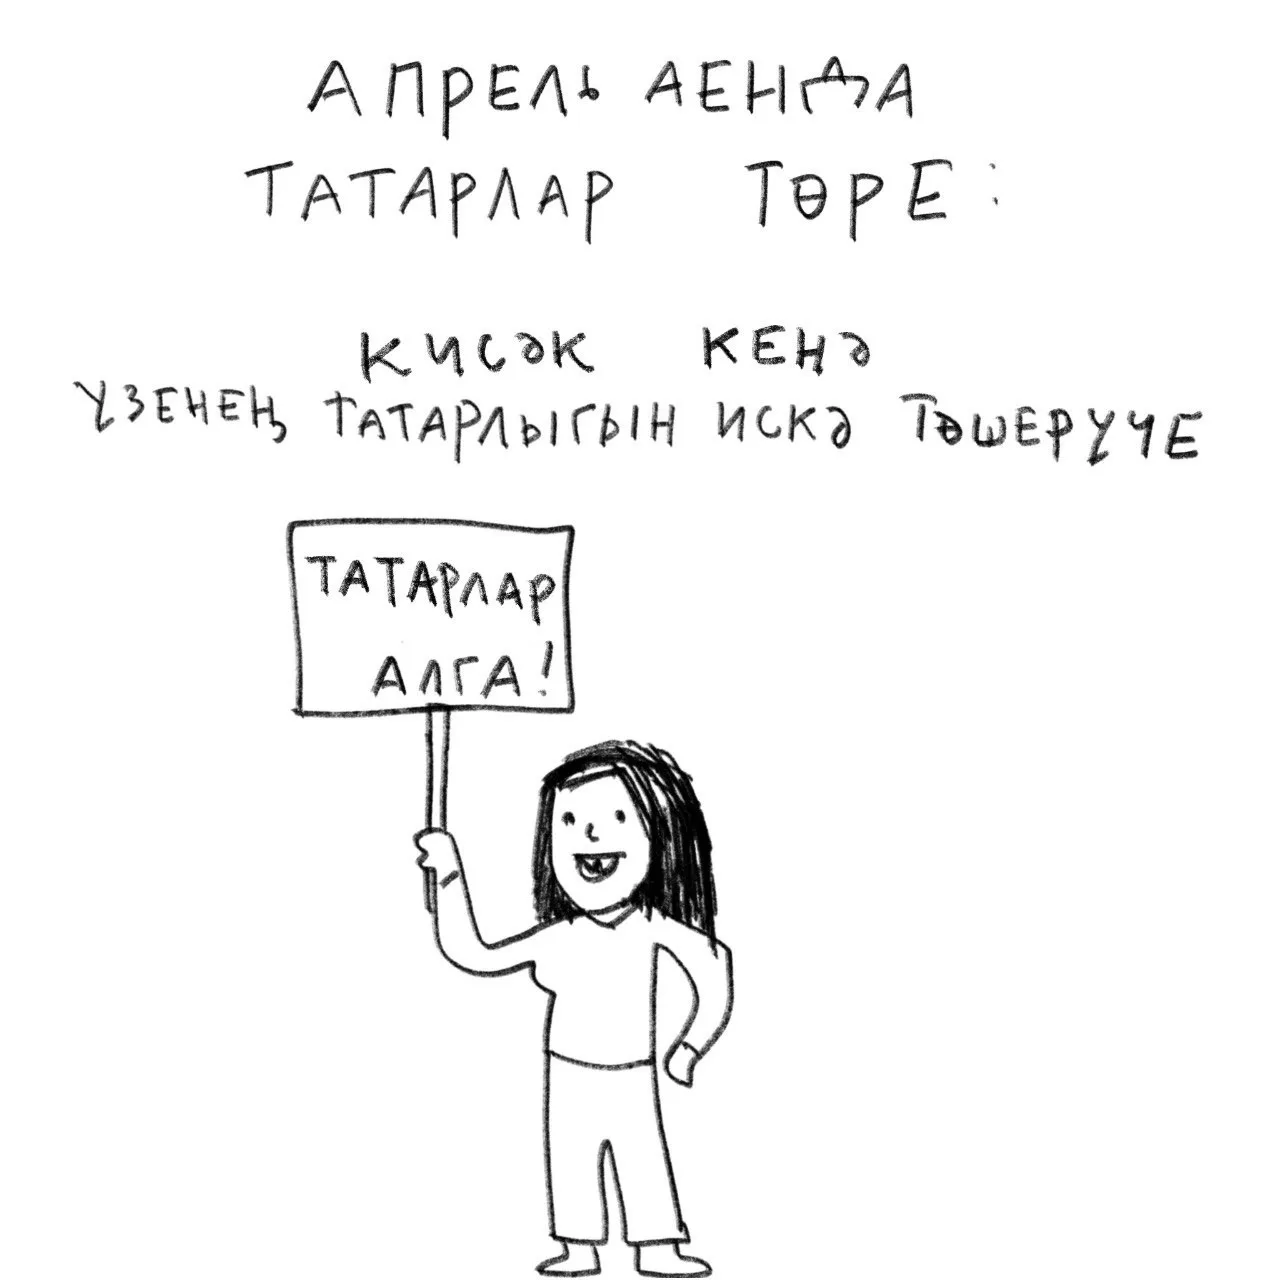 АПРЕЛЬ АЕНДА
ТАТАРЛАР ТӨРЕ:
КИСӘК КЕНӘ
ҮЗЕНЕҢ ТАТАРЛЫГЫН ИСКӘ ТӨШЕРҮЧЕ
ТАТАРЛАР
АЛГА!